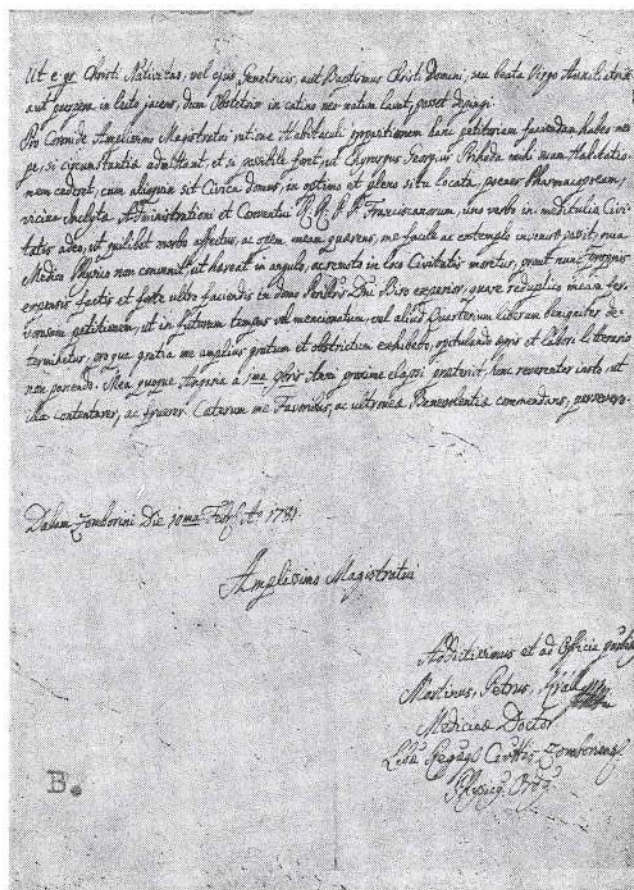 Ut e. gr. Christi Nativitas, vel ejus Genetricis, aut Baptismus Christi Domini, seu beata Virgo Auxiliatrix
aut puerpera in lecto jacens, dum Obstetrix in catino neo natum lavat, posset depingi.
Pro Coronide Amplissimo Magistratui ratione Habitaculi propositionem hanc petitoriam faciendam habeo
pe, si circumstantiae admittant, et si possibile foret, ut Chyrurgus Georgius Rhoda mihi suam Habitatio-
nem cederet, cum aliquin sit Civica domus, in optimo et pleno situ locata, penes Pharmacopoeam,
vicina Inclytae Administrationi et Conventui R. R. P. P. Franciscanorum, uno verbo in meditulio Civi-
tatis adeo, ut quilibet morbo affectus, ac opem meam quaerens, me facile ac extemplo invenire possit, nam
Medico Physico non convenit, ut haereat in angulo, ac remoto in loco Civitatis moretur, prout nunc propriis
expensis factis et forte ultro faciendis in domo Dni Biro experior, quare reduplico meam fer-
vorosam petitionem, ut in futurum tempus vel mencionatum, vel aliud Quarterium liberum benigniter de-
terminetur, pro qua gratia me amplius gratum et obstrictum exhibebo, opitulando aegris et labori litterario
non parcendo. Mea quoque Angaria a 1ma 9bris Anni proxime elapsi praeteriit, hinc reverenter insto, ut
illa contentarer, ac fruerer. Caeterum me Favoribus, ac ultroneae Benevolentiae commendans, persevero.
Datum Zomborini Die 10ma Feb. Ao 1781.
Amplissimo Magistratui
Addictissimus et ad Officia
Martinus, Petrus,
Medicinae Doctor
Liberae Regiaeque Civittis Zomboriensis
Physicus Ord.
B.